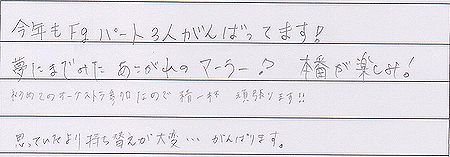 今年もFgパート3人がんばってます!
夢にまでみた あこがれのマーラー!? 本番が楽しみ!
初めてのオーケストラ参加なので 精一杯 頑張ります!!
思っていたより持ち替えが大変… がんばります。